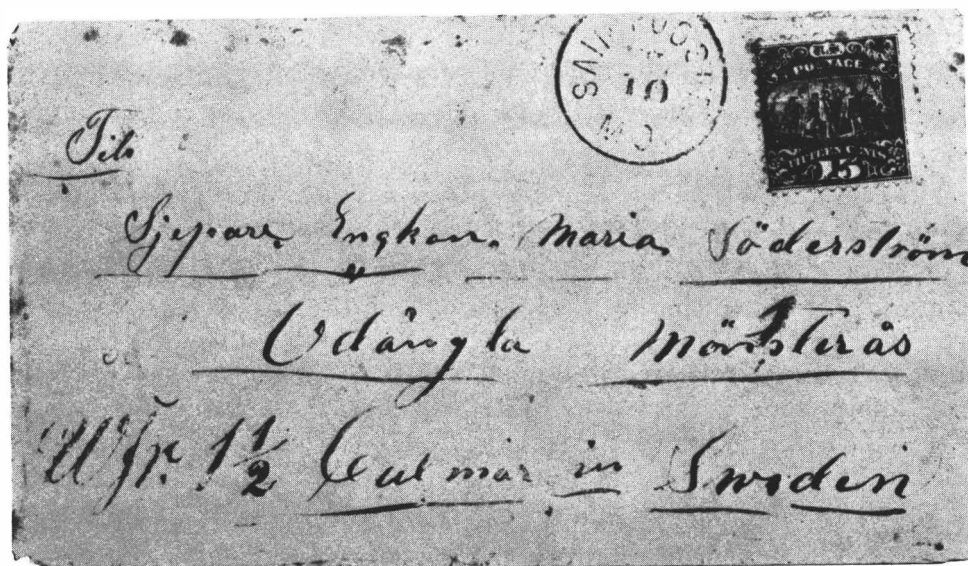 10
MO
U.S. POSTAGE
FIFTEEN CENTS
15
Till
Sjepare Enqkan. Maria Söderström
Ödängla Mönsterås
Wfr. 1½ Calmar in Sweden